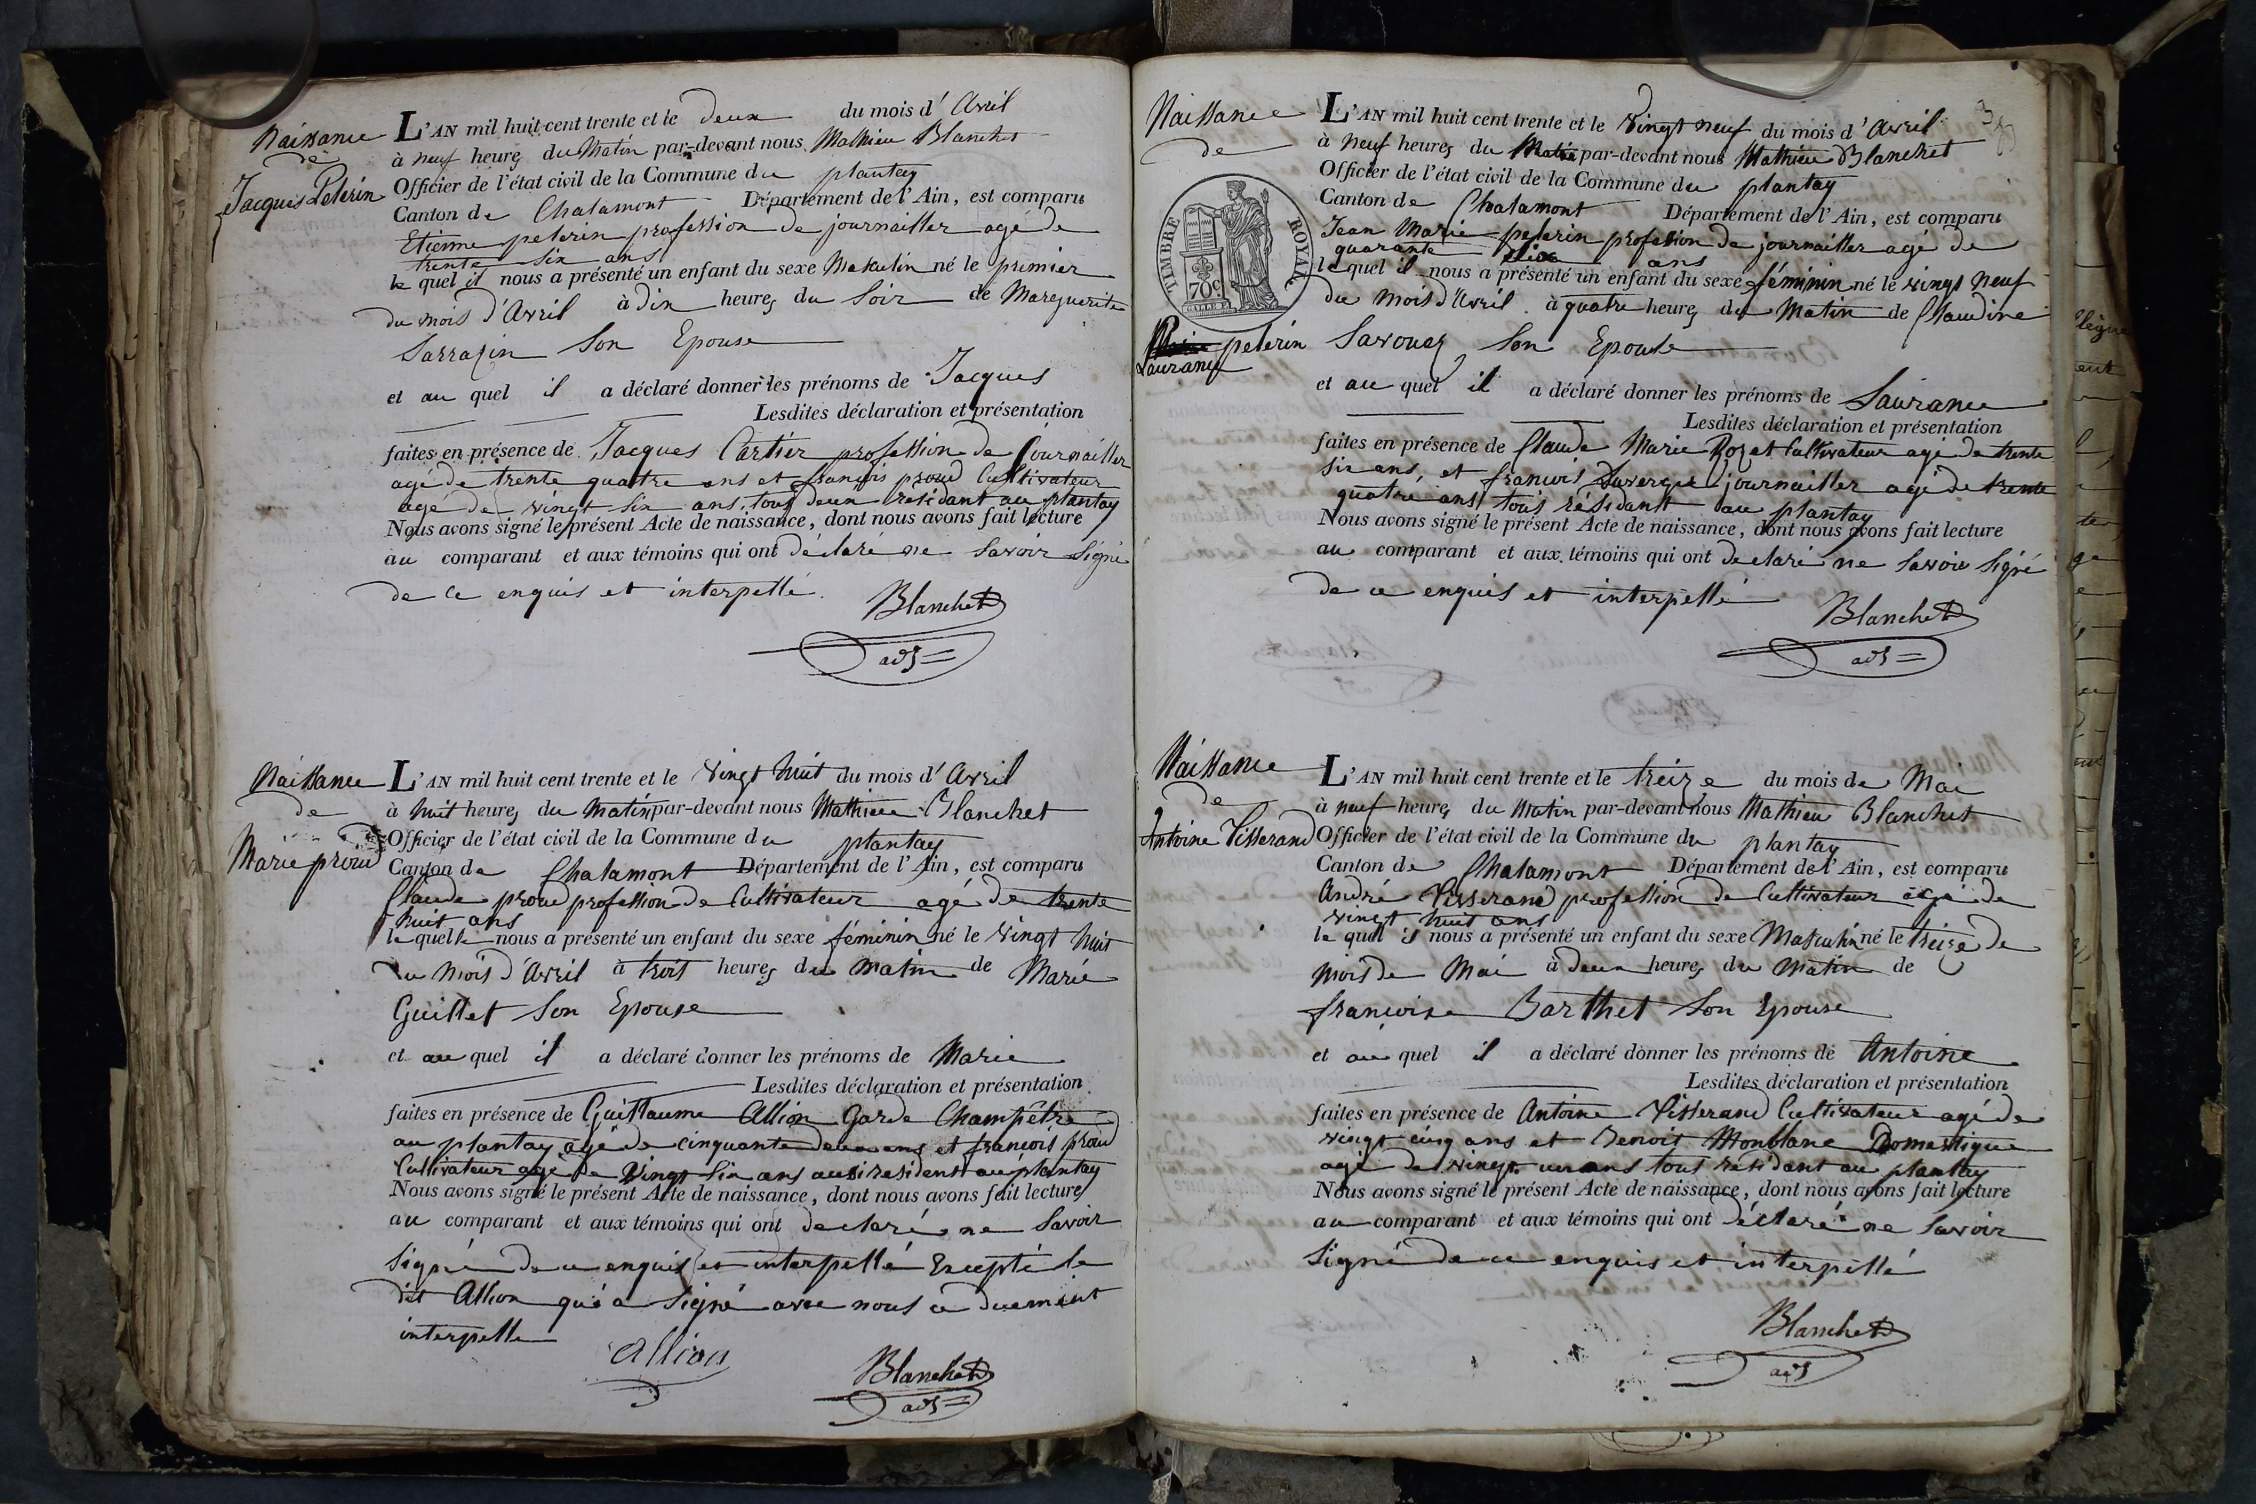 Naissance
de
Jacques Pelerin
L'AN mil huit cent trente et le deux du mois d'Avril
à neuf heures du Matin par-devant nous Mathieu Blanchet
Officier de l'état civil de la Commune du plantay
Canton de Chalamont Département de l'Ain, est comparu
Etienne pelerin profession de journailler agé de
trente six ans
le quel il nous a présenté un enfant du sexe Maskulin né le premier
du mois d'Avril à dix heures du Soir de Marguerite
Sarrazin Son Epouse
et au quel il a déclaré donner les prénoms de Jacques
Lesdites déclaration et présentation
faites en présence de Jacques Cartier profession de Journailler
agé de trente quattre ans et françois proud Cultivateur
agé de vingt six ans, tous deux residant au plantay
Nous avons signé le présent Acte de naissance, dont nous avons fait lecture
au comparant et aux témoins qui ont déclaré ne Savoir Signé
de ce enquis et interpellé.
Blanchet
adj
Naissance
de
Marie proud
L'AN mil huit cent trente et le vingt huit du mois d'Avril
à huit heures du Matin par-devant nous Mathieu Blanchet
Officier de l'état civil de la Commune du plantay
Canton de Chalamont Département de l'Ain, est comparu
Claude proud profession de Cultivateur agé de trente
huit ans
le quel le nous a présenté un enfant du sexe féminin né le vingt huit
du Mois d'Avril à trois heures du matin de Marie
Guillet Son Epouse
et au quel il a déclaré donner les prénoms de Marie
Lesdites déclaration et présentation
faites en présence de Guillaume Allion Garde Champêtre
au plantay agé de cinquante deux ans et francois proud
Cultivateur agé de vingt six ans ausi resident au plantay
Nous avons signé le présent Acte de naissance, dont nous avons fait lecture
au comparant et aux témoins qui ont declaré ne Savoir
Signé de ce enquis et interpellé Excepté le
dit Allion qui a Signé avec nous ce duement
interpelle
Allion
Blanchet
adj
38
Naissance
de
TIMBRE ROYAL
70c
pelerin
Laurance
L'AN mil huit cent trente et le vingt neuf du mois d'Avril
à neuf heures du Matin par-devant nous Mathieu Blanchet
Officier de l'état civil de la Commune du plantay
Canton de Chalamont Département de l'Ain, est comparu
Jean Marie pelerin profession de journailler agé de
quarante ans
le quel il nous a présenté un enfant du sexe féminin né le vingt neuf
du Mois d'Avril à quatre heures du Matin de Claudine
Savouez Son Epouse
et au quel il a déclaré donner les prénoms de Laurance
Lesdites déclaration et présentation
faites en présence de Claude Marie Rozet Cultivateur agé de trente
six ans, et francois Duvergie journailler agé de trente
quatre ans tous résidant au plantay
Nous avons signé le présent Acte de naissance, dont nous avons fait lecture
au comparant et aux témoins qui ont declaré ne Savoir Signé
de ce enquis et interpellé
Blanchet
adj
Naissance
de
Antoine Tisserand
L'AN mil huit cent trente et le treize du mois de Mai
à neuf heures du Matin par-devant nous Mathieu Blanchet
Officier de l'état civil de la Commune du plantay
Canton de Chalamont Département de l'Ain, est comparu
André Tisserand profession de Cultivateur agé de
vingt huit ans
le quel il nous a présenté un enfant du sexe Masculin né le treize de
mois de Mai à deux heures du Matin de
françoise Barthet Son Epouse
et au quel il a déclaré donner les prénoms de Antoine
Lesdites déclaration et présentation
faites en présence de Antoine Tisserand Cultivateur agé de
vingt cinq ans et Benoit Monblanc Domestique
agé de vingt un ans tous résidant au plantay
Nous avons signé le présent Acte de naissance, dont nous avons fait lecture
au comparant et aux témoins qui ont déclaré ne Savoir
Signé de ce enquis et interpellé
Blanchet
adj